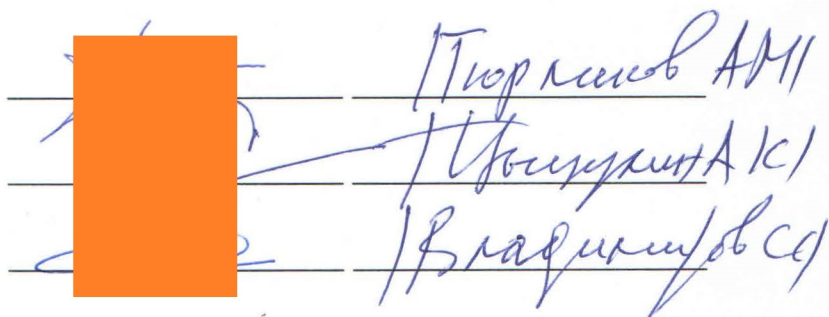 /Тюрликов АМ/
/Цыцулин АК/
/Владимиров СС/